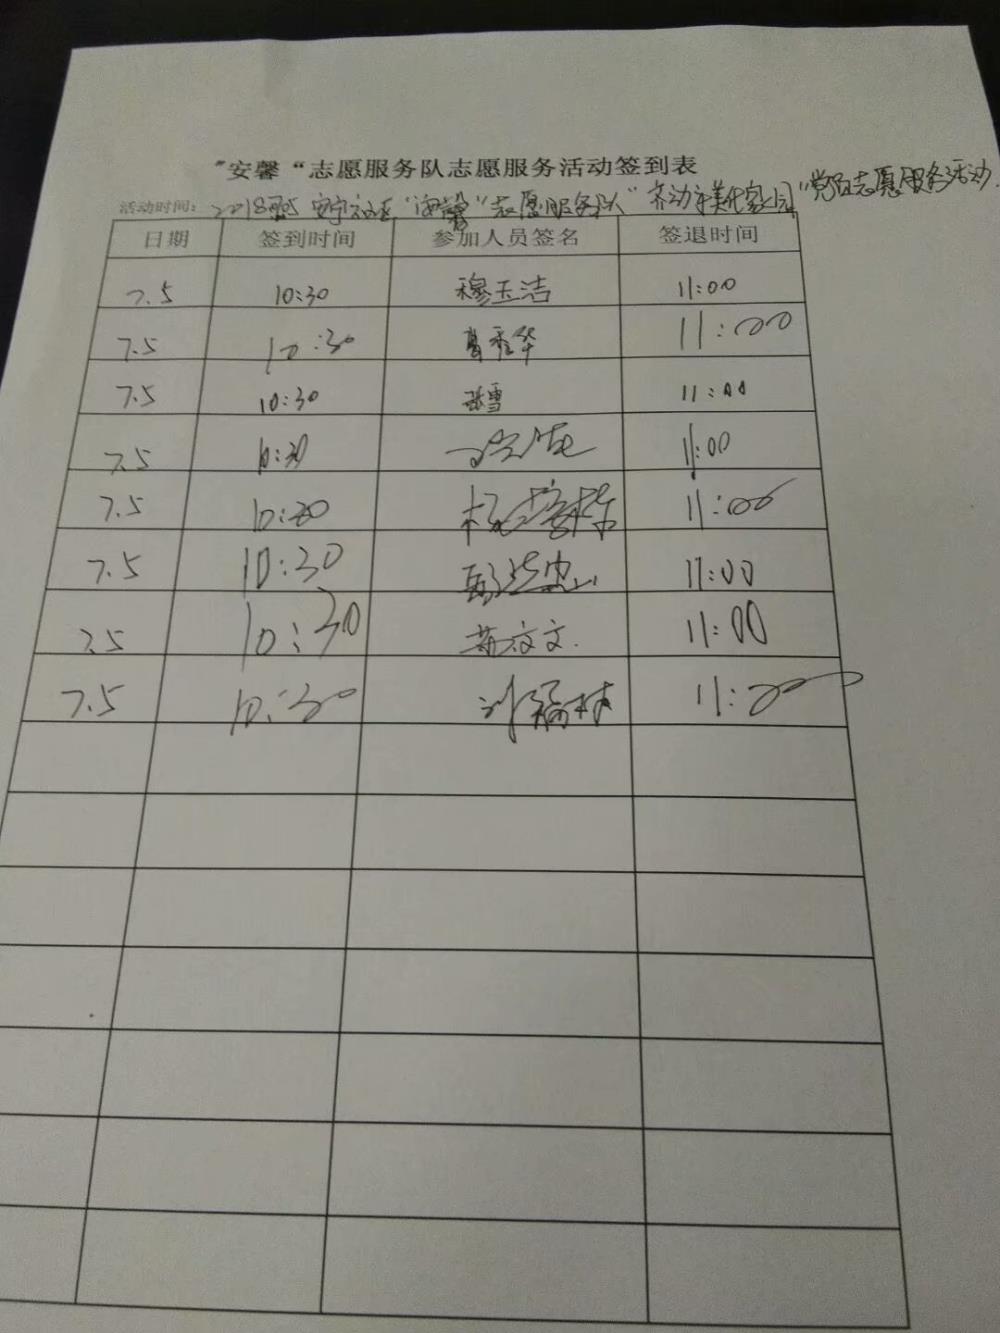 "安馨“志愿服务队志愿服务活动签到表
活动时间: 2018.7.5 安宁社区“安馨”志愿服务队“齐动手美化家园”党员志愿服务活动.
日期 签到时间 参加人员签名 签退时间
7.5 10:30 穆玉洁 11:00
7.5 10:30 葛秀华 11:00
7.5 10:30 张雪 11:00
7.5 10:30 11:00
7.5 10:30 11:00
7.5 10:30 11:00
7.5 10:30 苏文文. 11:00
7.5 10:30 刘福林 11:00